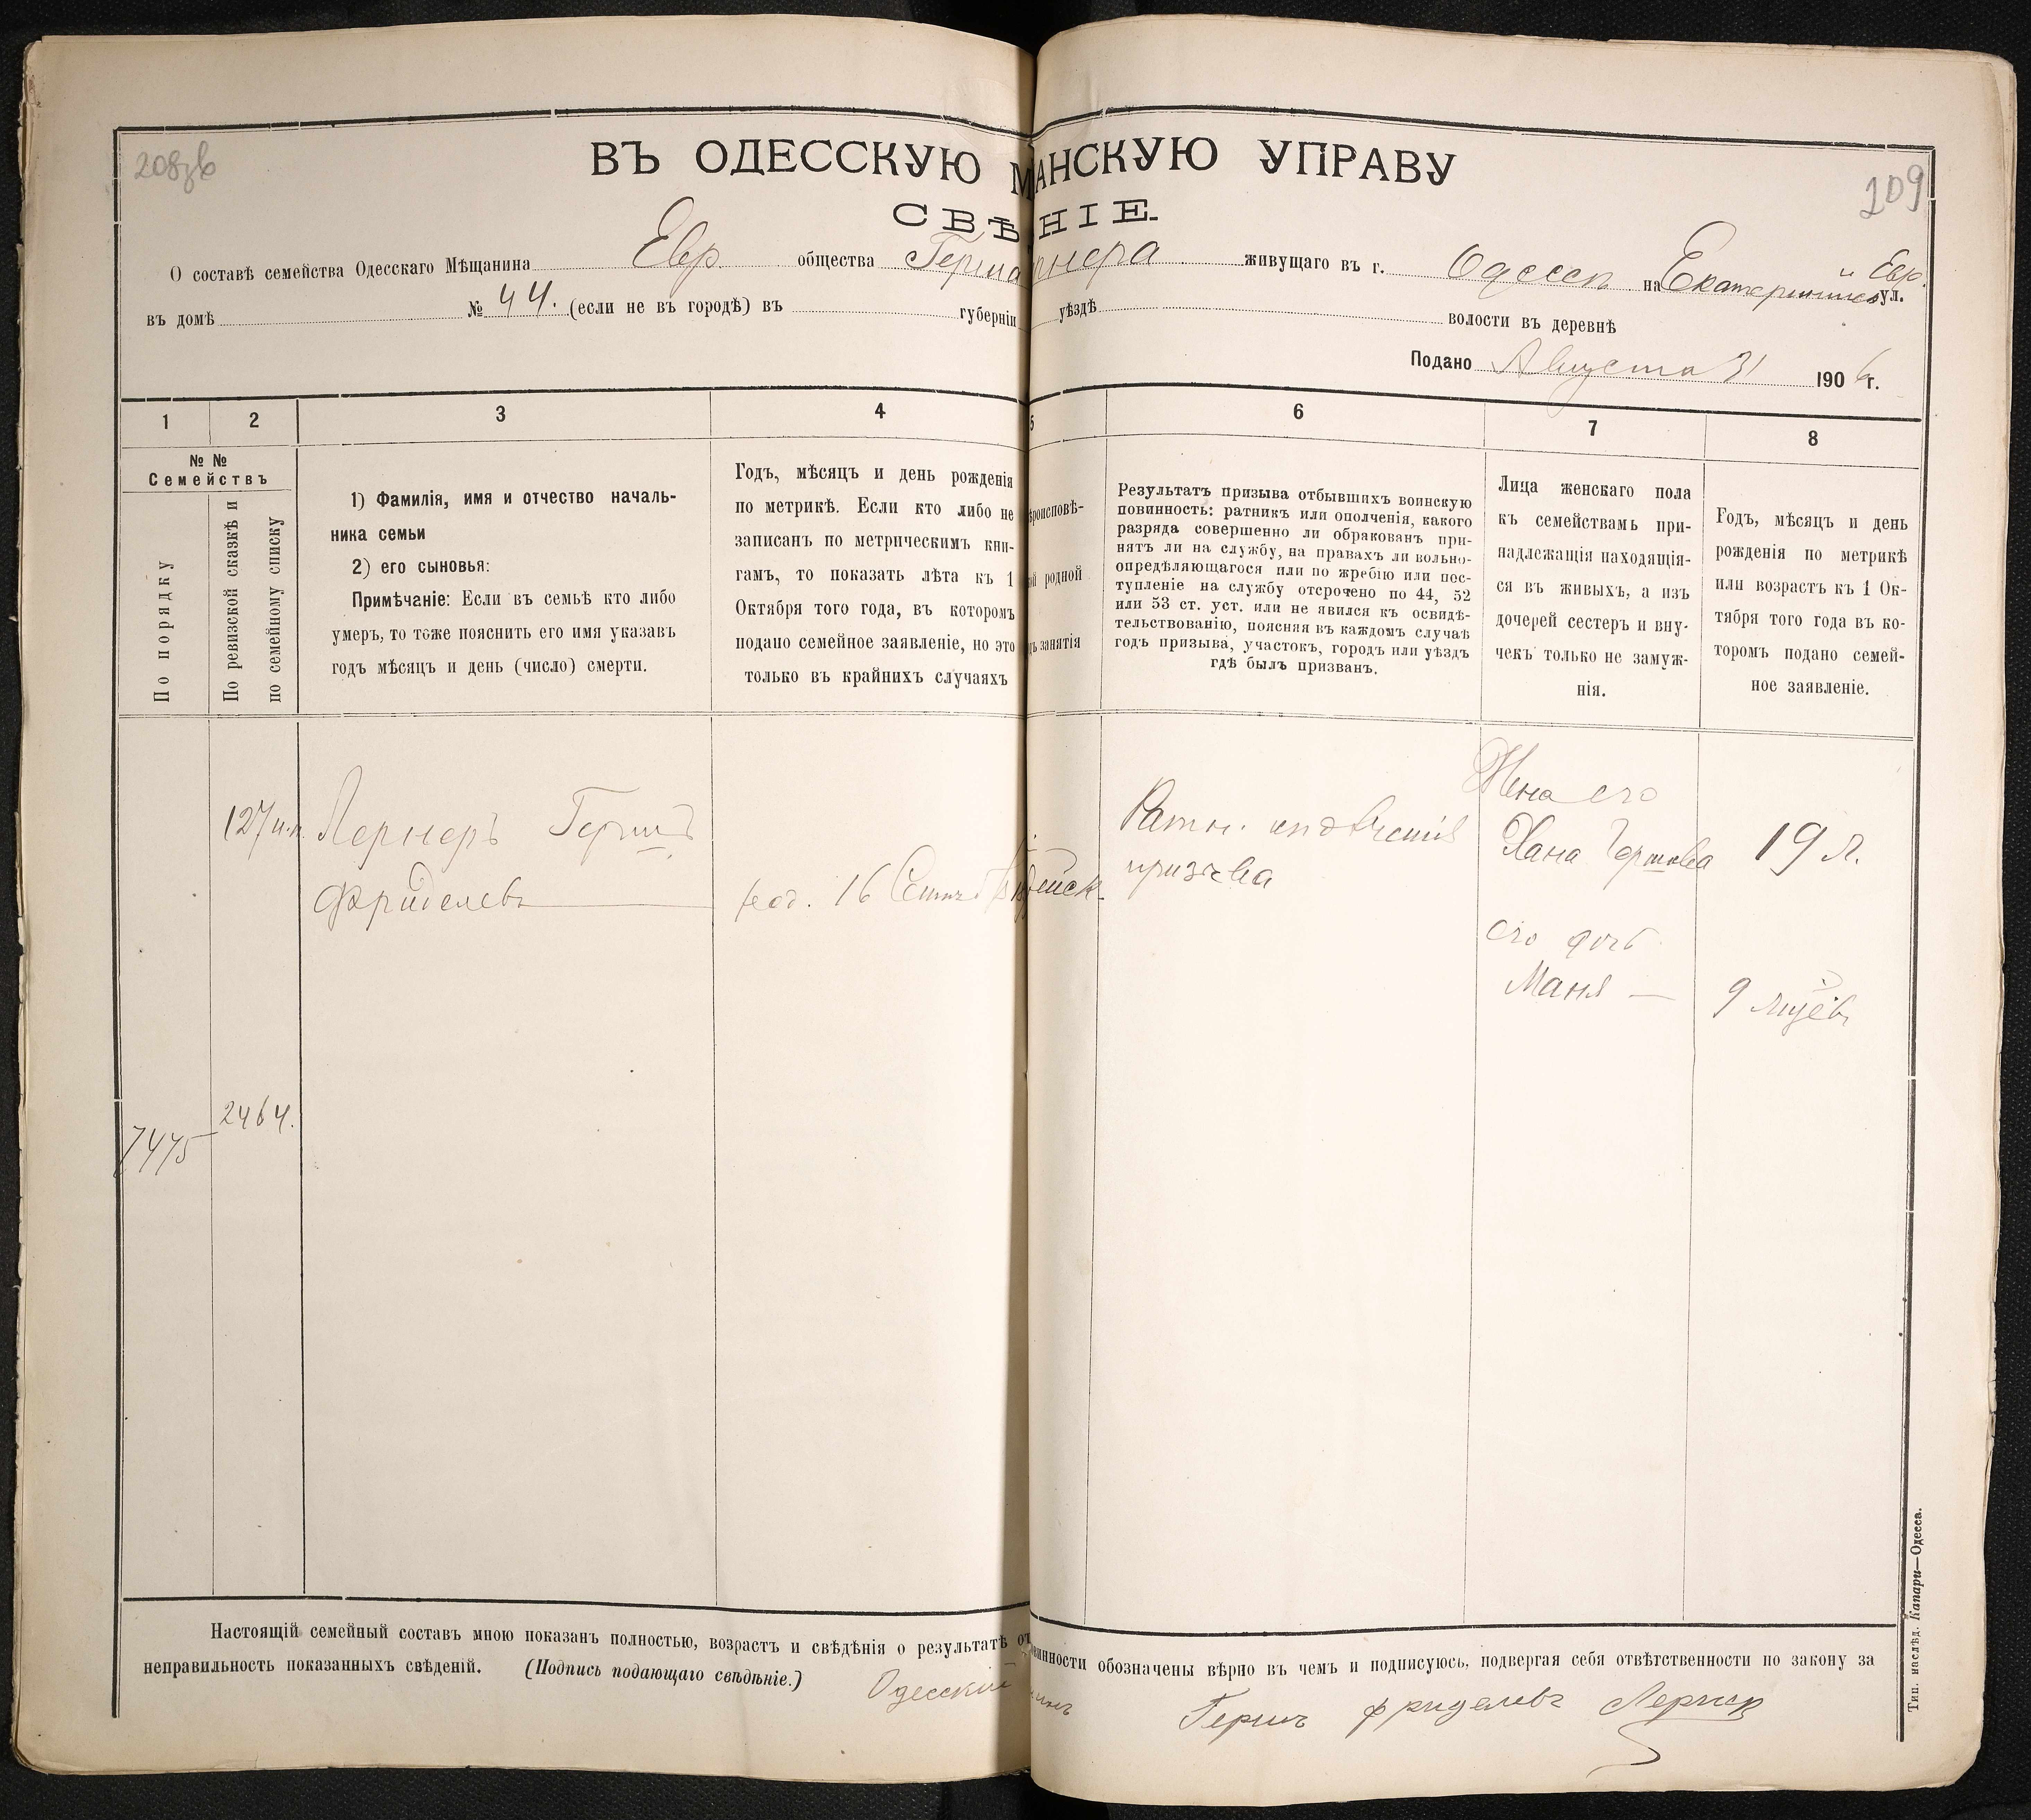 208зв
209
ВЪ ОДЕССКУЮ М АНСКУЮ УПРАВУ
СВѢ НІЕ.
О составѣ семейства Одесскаго Мѣщанина Евр общества Герша рнера живущаго въ г. Одессѣ на Екатерининс и Евр. ул.
въ домѣ № 44. (если не въ городѣ) въ губерніи уѣздѣ волости въ деревнѣ
Подано Августа 31 1906 г.
1 2 3 4 5 6 7 8
№ №
Семействъ
По порядку
По ревизской сказкѣ и
по семейному списку
1) Фамилія, имя и отчество началь-
ника семьи
2) его сыновья:
Примѣчаніе: Если въ семьѣ кто либо
умеръ, то тоже пояснить его имя указавъ
годъ мѣсяцъ и день (число) смерти.
Годъ, мѣсяцъ и день рожденія
по метрикѣ. Если кто либо не
записанъ по метрическимъ кни-
гамъ, то показать лѣта къ 1
Октября того года, въ которомъ
подано семейное заявленіе, но это
только въ крайнихъ случаяхъ
ѣроисповѣ-
ой родной
дъ занятія
Результатъ призыва отбывшихъ воинскую
повинность: ратникъ или ополченія, какого
разряда совершенно ли обракованъ при-
нятъ ли на службу, на правахъ ли вольно-
опредѣляющагося или по жребію или пос-
тупленіе на службу отсрочено по 44, 52
или 53 ст. уст. или не явился къ освидѣ-
тельствованію, поясняя въ каждомъ случаѣ
годъ призыва, участокъ, городъ или уѣздъ
гдѣ былъ призванъ.
Лица женскаго пола
къ семействамъ при-
надлежащія находящія-
ся въ живыхъ, а изъ
дочерей сестеръ и вну-
чекъ только не замуж-
нія.
Годъ, мѣсяцъ и день
рожденія по метрикѣ
или возрастъ къ 1 Ок-
тября того года въ ко-
торомъ подано семей-
ное заявленіе.
127 Лернеръ Гершъ
Фриделевъ
род. 16
Ратн.
призыва
Жена его
Хана Гершова 19 л.
его дочь
Маня — 9 м-цевъ
2464.
7475
Настоящій семейный составъ мною показанъ полностью, возрастъ и свѣдѣнія о результатѣ от винности обозначены вѣрно въ чемъ и подписуюсь, подвергая себя отвѣтственности по закону за
неправильность показанныхъ свѣденій. (Подпись подающаго свѣдѣніе.)
Одесскій инъ Гершъ Фриделевъ Лернер
Тип. наслѣд. Капари—Одесса.